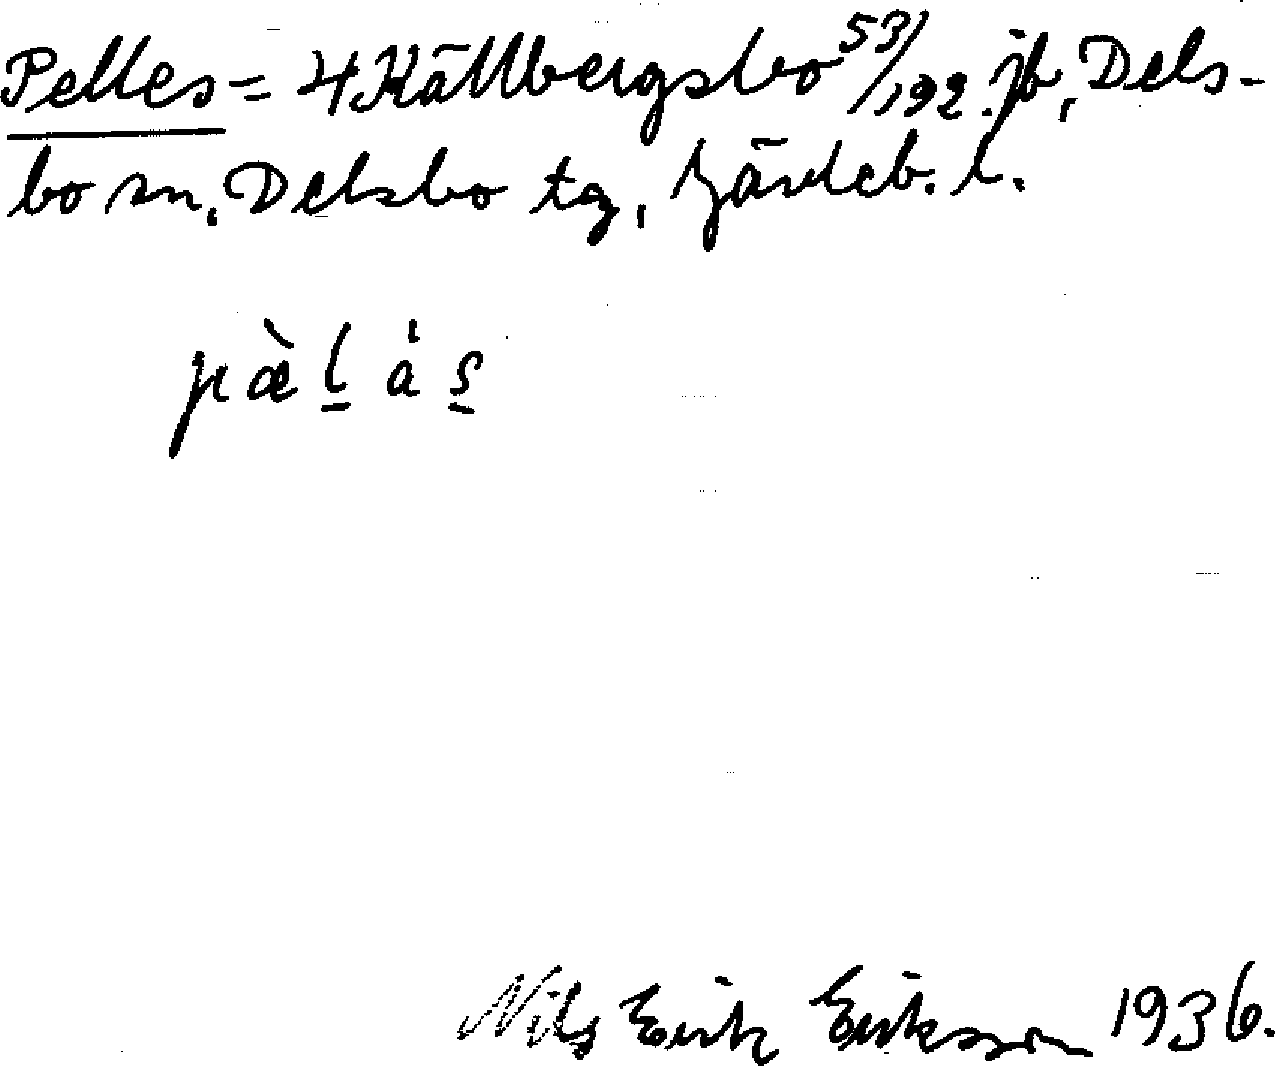 Pelles = 4 Källbergsbo 53/192 jb, Dels-
bo sn, Delsbo tg, Gävleb. l.
pæ̀l̠a̍s̠
Nils Erik Eriksson 1936.